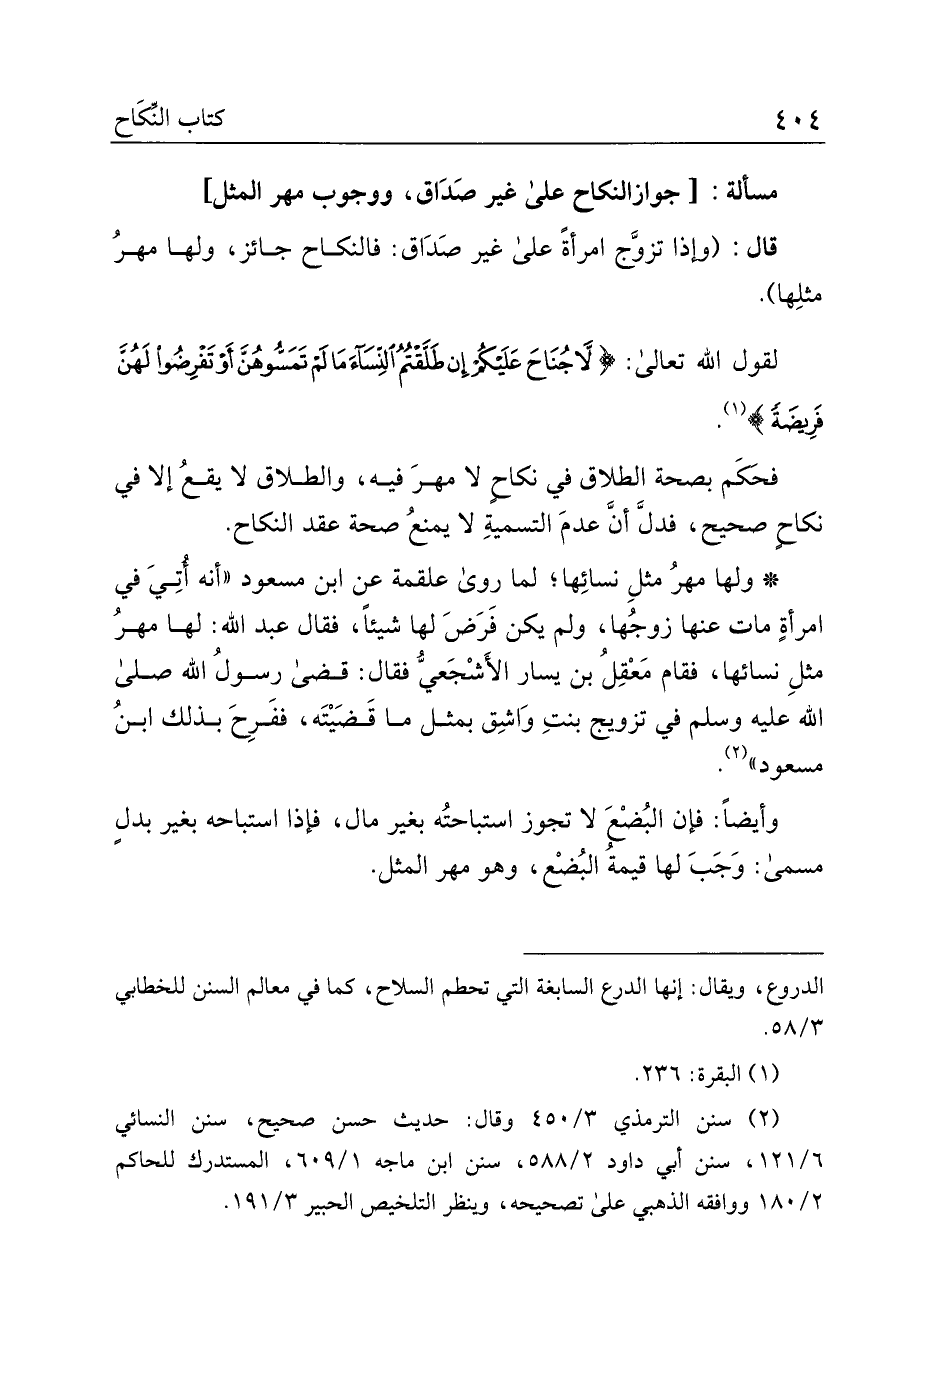 ٤٠٤ كتاب النِّكَاح
مسألة : [ جوازالنكاح علىٰ غير صَدَاق، ووجوب مهر المثل]
قال : (وإذا تزوَّج امرأةً علىٰ غير صَدَاق: فالنكاح جائز، ولها مهرُ
مثلِها).
لقول الله تعالىٰ: ﴿ لَّا جُنَاحَ عَلَيْكُمْ إِن طَلَّقْتُمُ ٱلنِّسَآءَ مَا لَمْ تَمَسُّوهُنَّ أَوْ تَفْرِضُوا۟ لَهُنَّ
فَرِيضَةً ﴾(١).
فحَكَم بصحة الطلاق في نكاحٍ لا مهرَ فيه، والطلاق لا يقعُ إلا في
نكاحٍ صحيح، فدلَّ أنَّ عدمَ التسميةِ لا يمنعُ صحة عقد النكاح.
* ولها مهرُ مثلِ نسائِها؛ لما روىٰ علقمة عن ابن مسعود «أنه أُتِيَ في
امرأةٍ مات عنها زوجُها، ولم يكن فَرَضَ لها شيئاً، فقال عبد الله: لها مهرُ
مثلِ نسائها، فقام مَعْقِلُ بن يسار الأَشْجَعيُّ فقال: قضىٰ رسولُ الله صلىٰ
الله عليه وسلم في تزويج بنتِ وَاشِق بمثل ما قَضَيْتَه، ففَرِحَ بذلك ابنُ
مسعود»(٢).
وأيضاً: فإن البُضْعَ لا تجوز استباحتُه بغير مال، فإذا استباحه بغير بدلٍ
مسمىٰ: وَجَبَ لها قيمةُ البُضْع، وهو مهر المثل.
الدروع، ويقال: إنها الدرع السابغة التي تحطم السلاح، كما في معالم السنن للخطابي
٥٨/٣.
(١) البقرة: ٢٣٦.
(٢) سنن الترمذي ٤٥٠/٣ وقال: حديث حسن صحيح، سنن النسائي
١٢١/٦، سنن أبي داود ٥٨٨/٢، سنن ابن ماجه ٦٠٩/١، المستدرك للحاكم
١٨٠/٢ ووافقه الذهبي علىٰ تصحيحه، وينظر التلخيص الحبير ١٩١/٣.